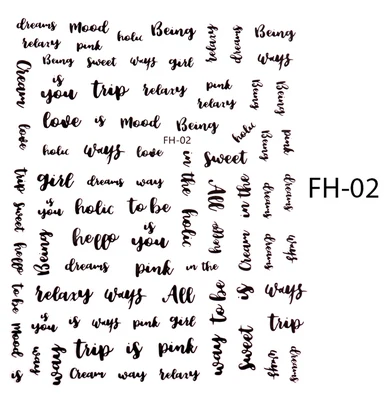 dreams Mood holic Being relaxy dreams Being
relaxy pink ways
Being sweet ways girl
Cream is you trip relaxy pink Being Being
relaxy
love is Mood Being holic
FH-02
love holic ways love in the holic sweet Being pink
trip girl dreams way All Cream in the dreams dreams
FH-02
sweet is you holic to be
heppo Being heppo is you heppo dreams ways
dreams pink in the
to be relaxy ways All way to be is ways
Mood is you is ways pink girl sweet trip
is way ways trip is pink ways dreams
Cream way relaxy